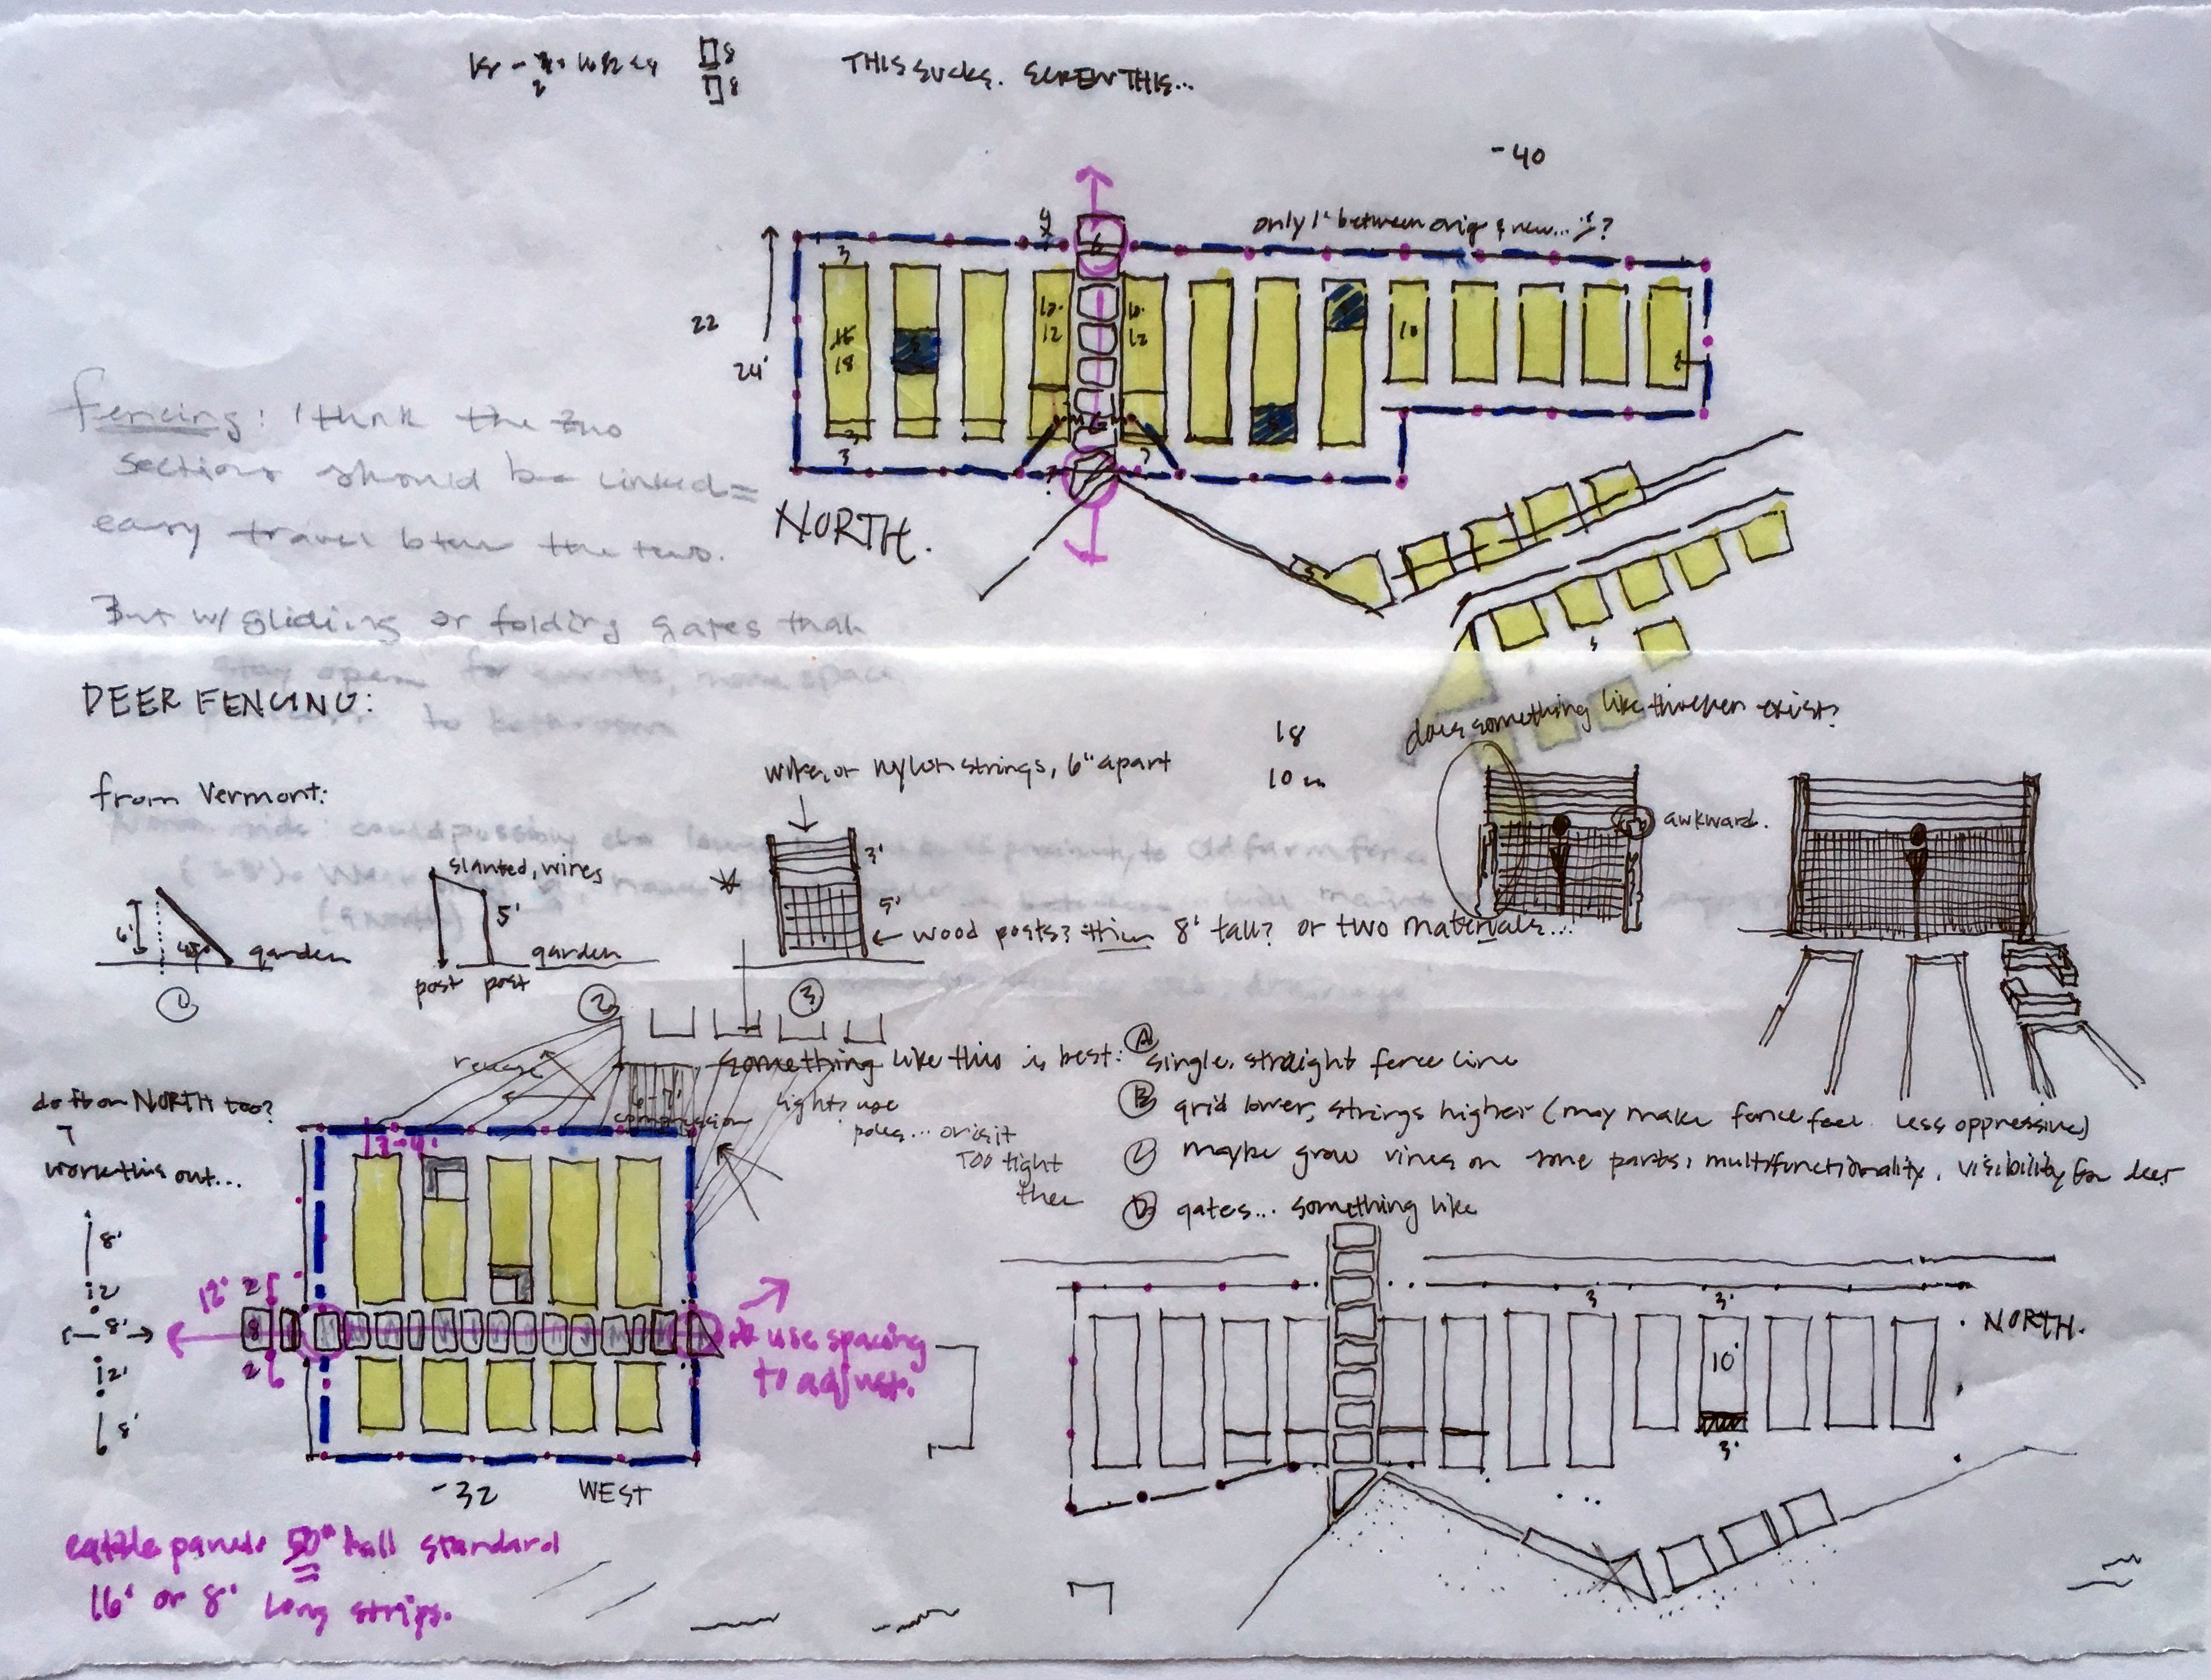 THIS SUCKS. SCREW THIS...
-40
only 1' between orig & new... ?
22
24'
3
16
18
3
3
10.
12
10.
12
10
NORTH.
fencing: I think the two
sections should be linked =
easy travel btwn the two.
But w/ gliding or folding gates that
stay open for events, more space
to bathroom
DEER FENCING:
from Vermont:
6'
45°
garden
1
slanted, wires
5'
garden
post post
2
wires or nylon strings, 6" apart
3'
5'
← wood posts? thin 8' tall? or two materials...
3
18
10
does something like this even exist?
awkward.
something like this is best: A single, straight fence line
B grid lower, strings higher (may make fence feel less oppressive)
C maybe grow vines on some parts: multifunctionality, visibility for deer
D gates... something like
compression
lights use
poles... or is it
TOO tight
then
do it on NORTH too?
work this out...
3-4'
8'
2
8'
2'
8'
12'
2
8
2
use spacing
to adjust.
-32
WEST
cattle panels 50" tall standard
16' or 8' long strips.
3'
3'
10'
3'
NORTH.